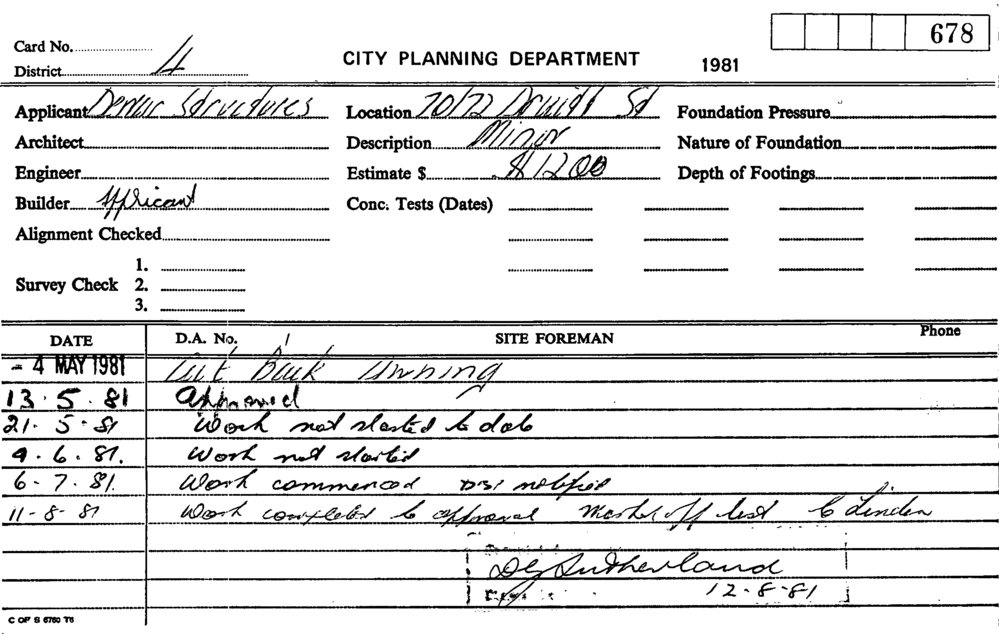 678
Card No.
District 4
CITY PLANNING DEPARTMENT 1981
Applicant Structures Location 70/72 Druitt St Foundation Pressure
Architect Description Minor Nature of Foundation
Engineer Estimate $ $1200 Depth of Footings
Builder Applicant Conc. Tests (Dates)
Alignment Checked
1.
Survey Check 2.
3.
DATE D.A. No. SITE FOREMAN Phone
- 4 MAY 1981 Cut Back Awning
13.5.81 Approved
21.5.81 Work not started to date
9.6.81. Work not started
6-7.81. Work commenced DSI notified
11-8-81 Work completed to approval Marked off list
Sutherland
12-8-81
C OF S 6760 T6